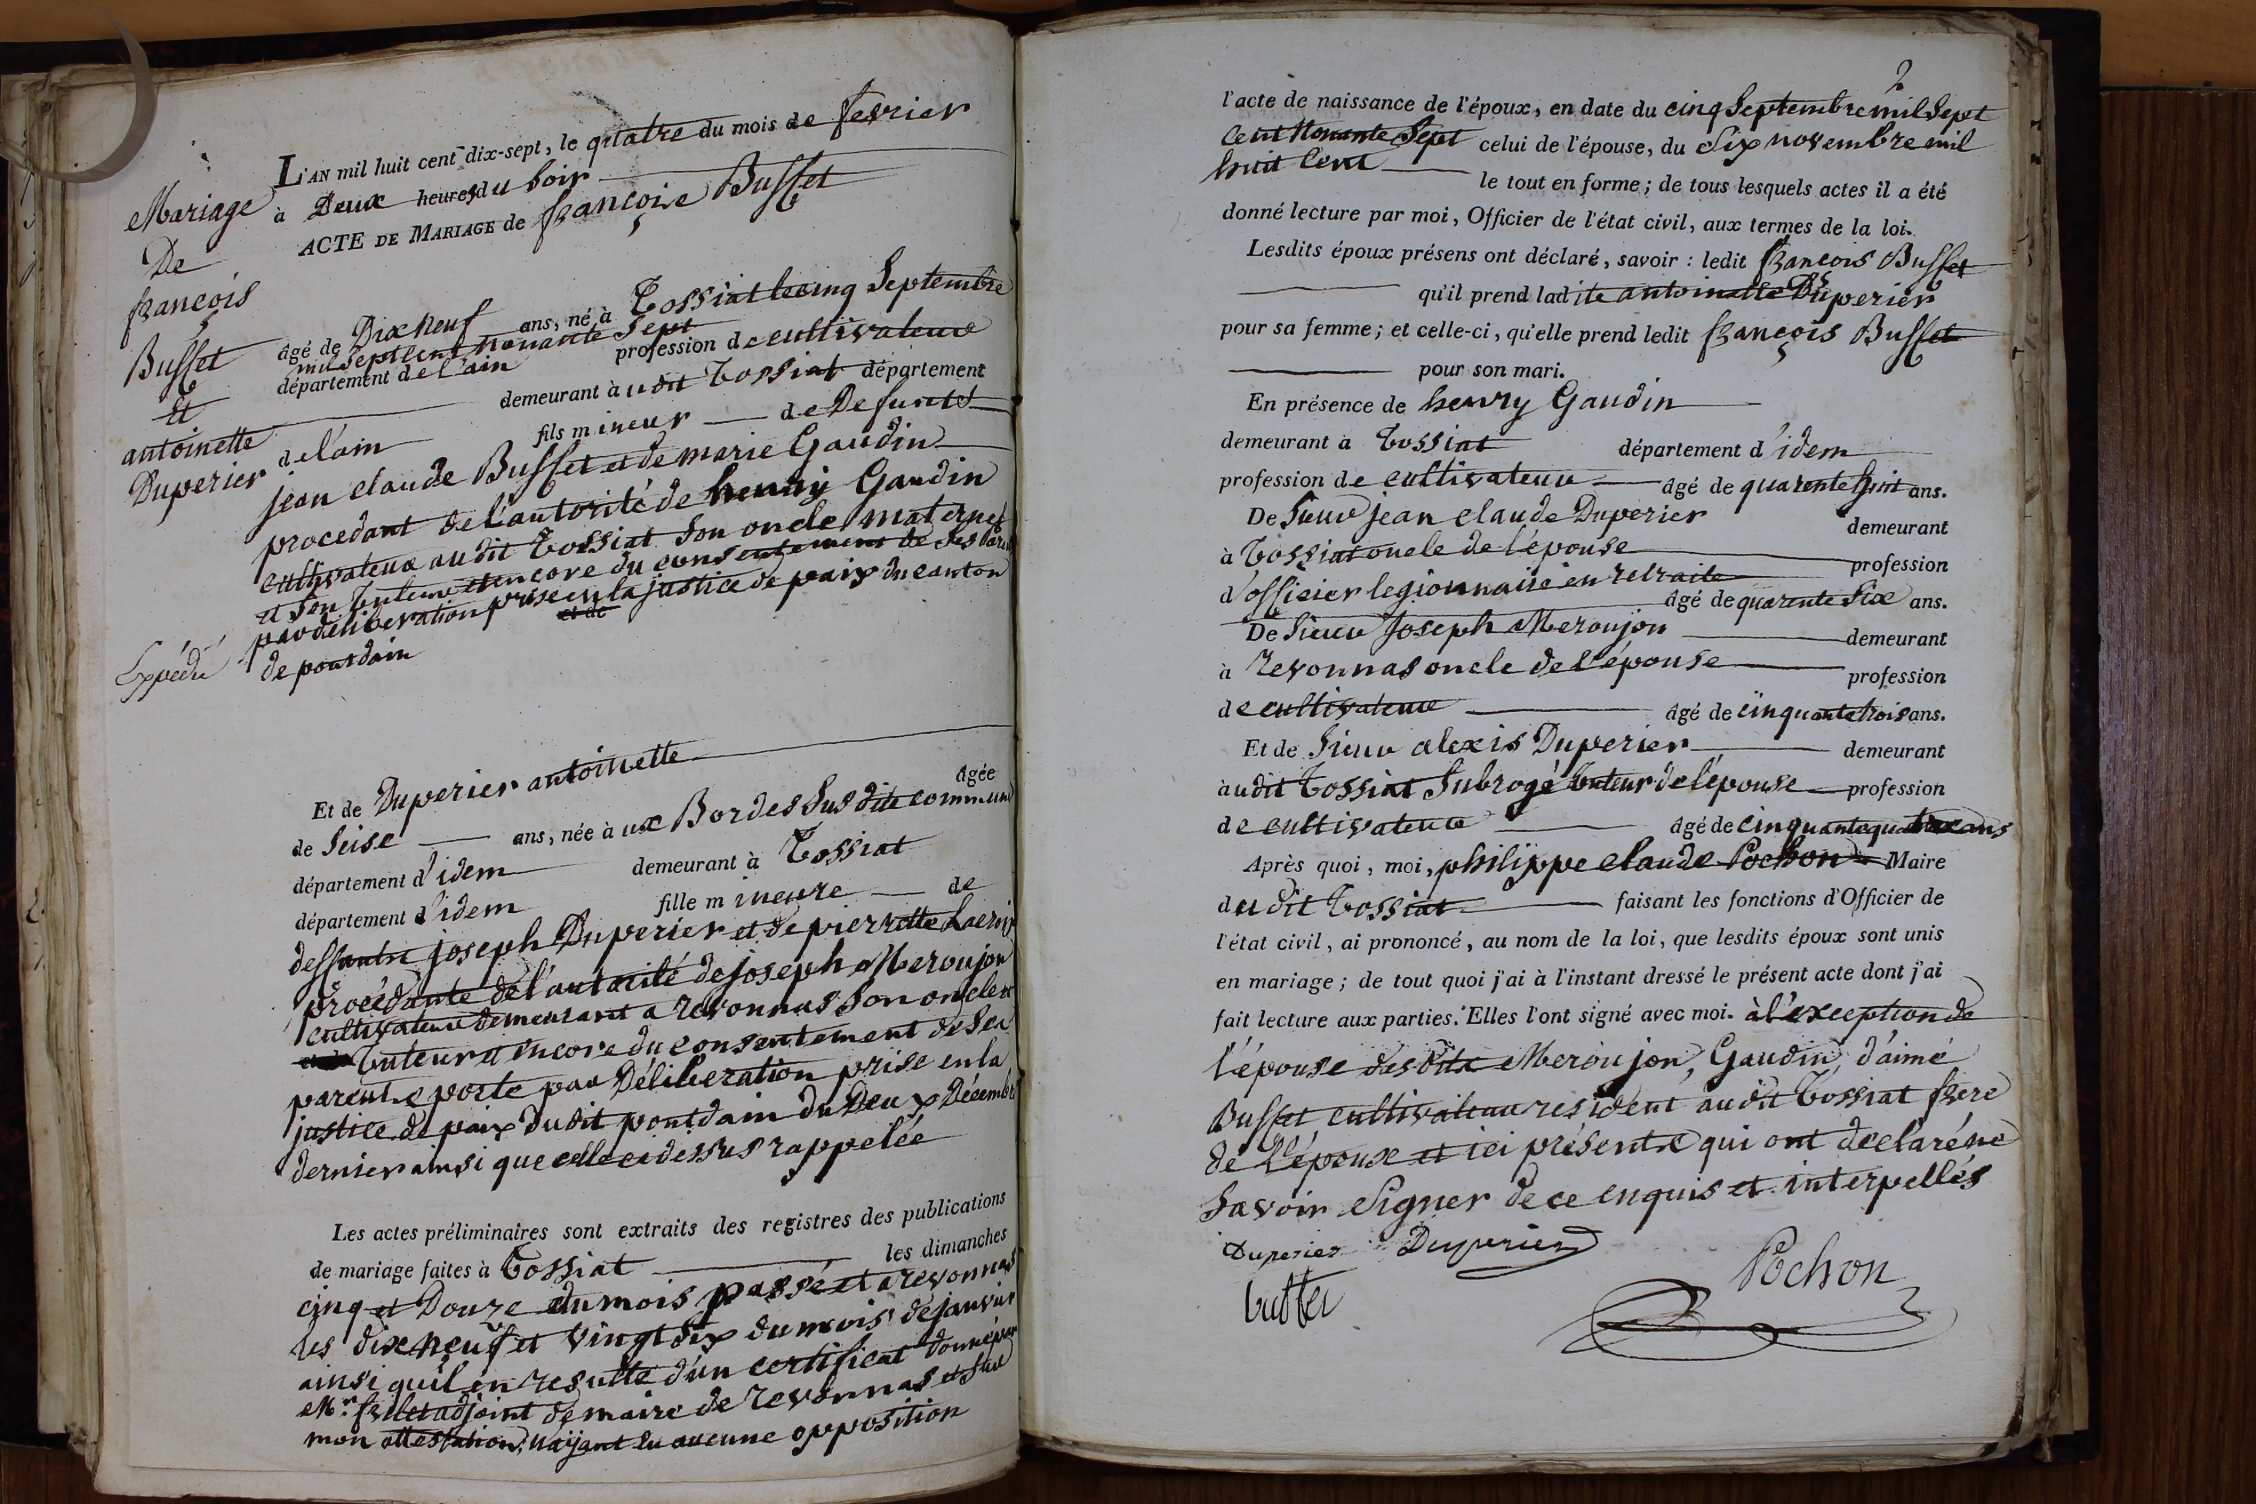 Mariage
De
françois
Busset
Et
antoinette
Duperier
Expédié
L'AN mil huit cent dix-sept, le quatre du mois de fevrier
à Deux heures du soir
ACTE DE MARIAGE de françois Busset
âgé de Dix neuf ans, né à Tossiat le cinq Septembre
mil Septcent nonante Sept
département de l'ain profession de cultivateur
demeurant à udit Tossiat département
de l'ain fils mineur de Defunts
jean claude Busset et de marie Gaudin
procedant de l'autorité de henry Gaudin
cultivateur audit Tossiat Son oncle maternel
et Son tuteur et encore du consentement de Ses
par déliberation prise en la justice de paix du canton
et de
de pontdain
Et de Duperier antoinette âgée
de Seise ans, née à ux Bordes Susdite commune
département d'idem demeurant à Tossiat
département d'idem fille mineure de
deffunts joseph Duperier et de pierrette Lacroix
procédante de l'autorité de joseph Meroujon
cultivateur demeurant a revonnas Son oncle et
tuteur et encore du consentement de Sea
parents porté par Déliberation prise en la
justice de paix dudit pontdain du Deux Décembre
dernier ainsi que celle ci dessus rappelée
Les actes préliminaires sont extraits des registres des publications
de mariage faites à Tossiat les dimanches
cinq et Douze du mois passé et a revonnas
les dixneuf et vingt Six du mois de janvier
ainsi quil en resulte d'un certificat donné par
Mr. adjoint de maire de revonnas et Sur
mon attestation, n'aijant Eu aucune opposition
2
l'acte de naissance de l'époux, en date du cinq Septembre mil Sept
Cent Nonante Sept celui de l'épouse, du Six novembre mil
huit Cent le tout en forme; de tous lesquels actes il a été
donné lecture par moi, Officier de l'état civil, aux termes de la loi.
Lesdits époux présens ont déclaré, savoir : ledit françois Busset
qu'il prend ladite antoinette Duperier
pour sa femme; et celle-ci, qu'elle prend ledit françois Busset
pour son mari.
En présence de henry Gaudin
demeurant à Tossiat département d'idem
profession de cultivateur âgé de quarente huit ans.
De Sieur jean claude Duperier demeurant
à Tossiat oncle de l'épouse profession
d'officier legionnaire en retraite âgé de quarente Six ans.
De Sieur Joseph Meroujon demeurant
à revonnas oncle de l'épouse profession
de cultivateur âgé de cinquante trois ans.
Et de Sieur alexis Duperier demeurant
à udit Tossiat Subrogé tuteur de l'épouse profession
de cultivateur âgé de cinquante quatre ans
Après quoi, moi, philippe claude Pochon Maire
du dit Tossiat faisant les fonctions d'Officier de
l'état civil, ai prononcé, au nom de la loi, que lesdits époux sont unis
en mariage; de tout quoi j'ai à l'instant dressé le présent acte dont j'ai
fait lecture aux parties. Elles l'ont signé avec moi. à l'exception de
l'épouse desdits Meroujon, Gaudin, d'aimé
Busset cultivateur resident audit Tossiat frere
de l'épouse et ici présente qui ont declaré ne
Savoir Signer de ce enquis et interpellés
Duperier Duperier
Pochon
busset